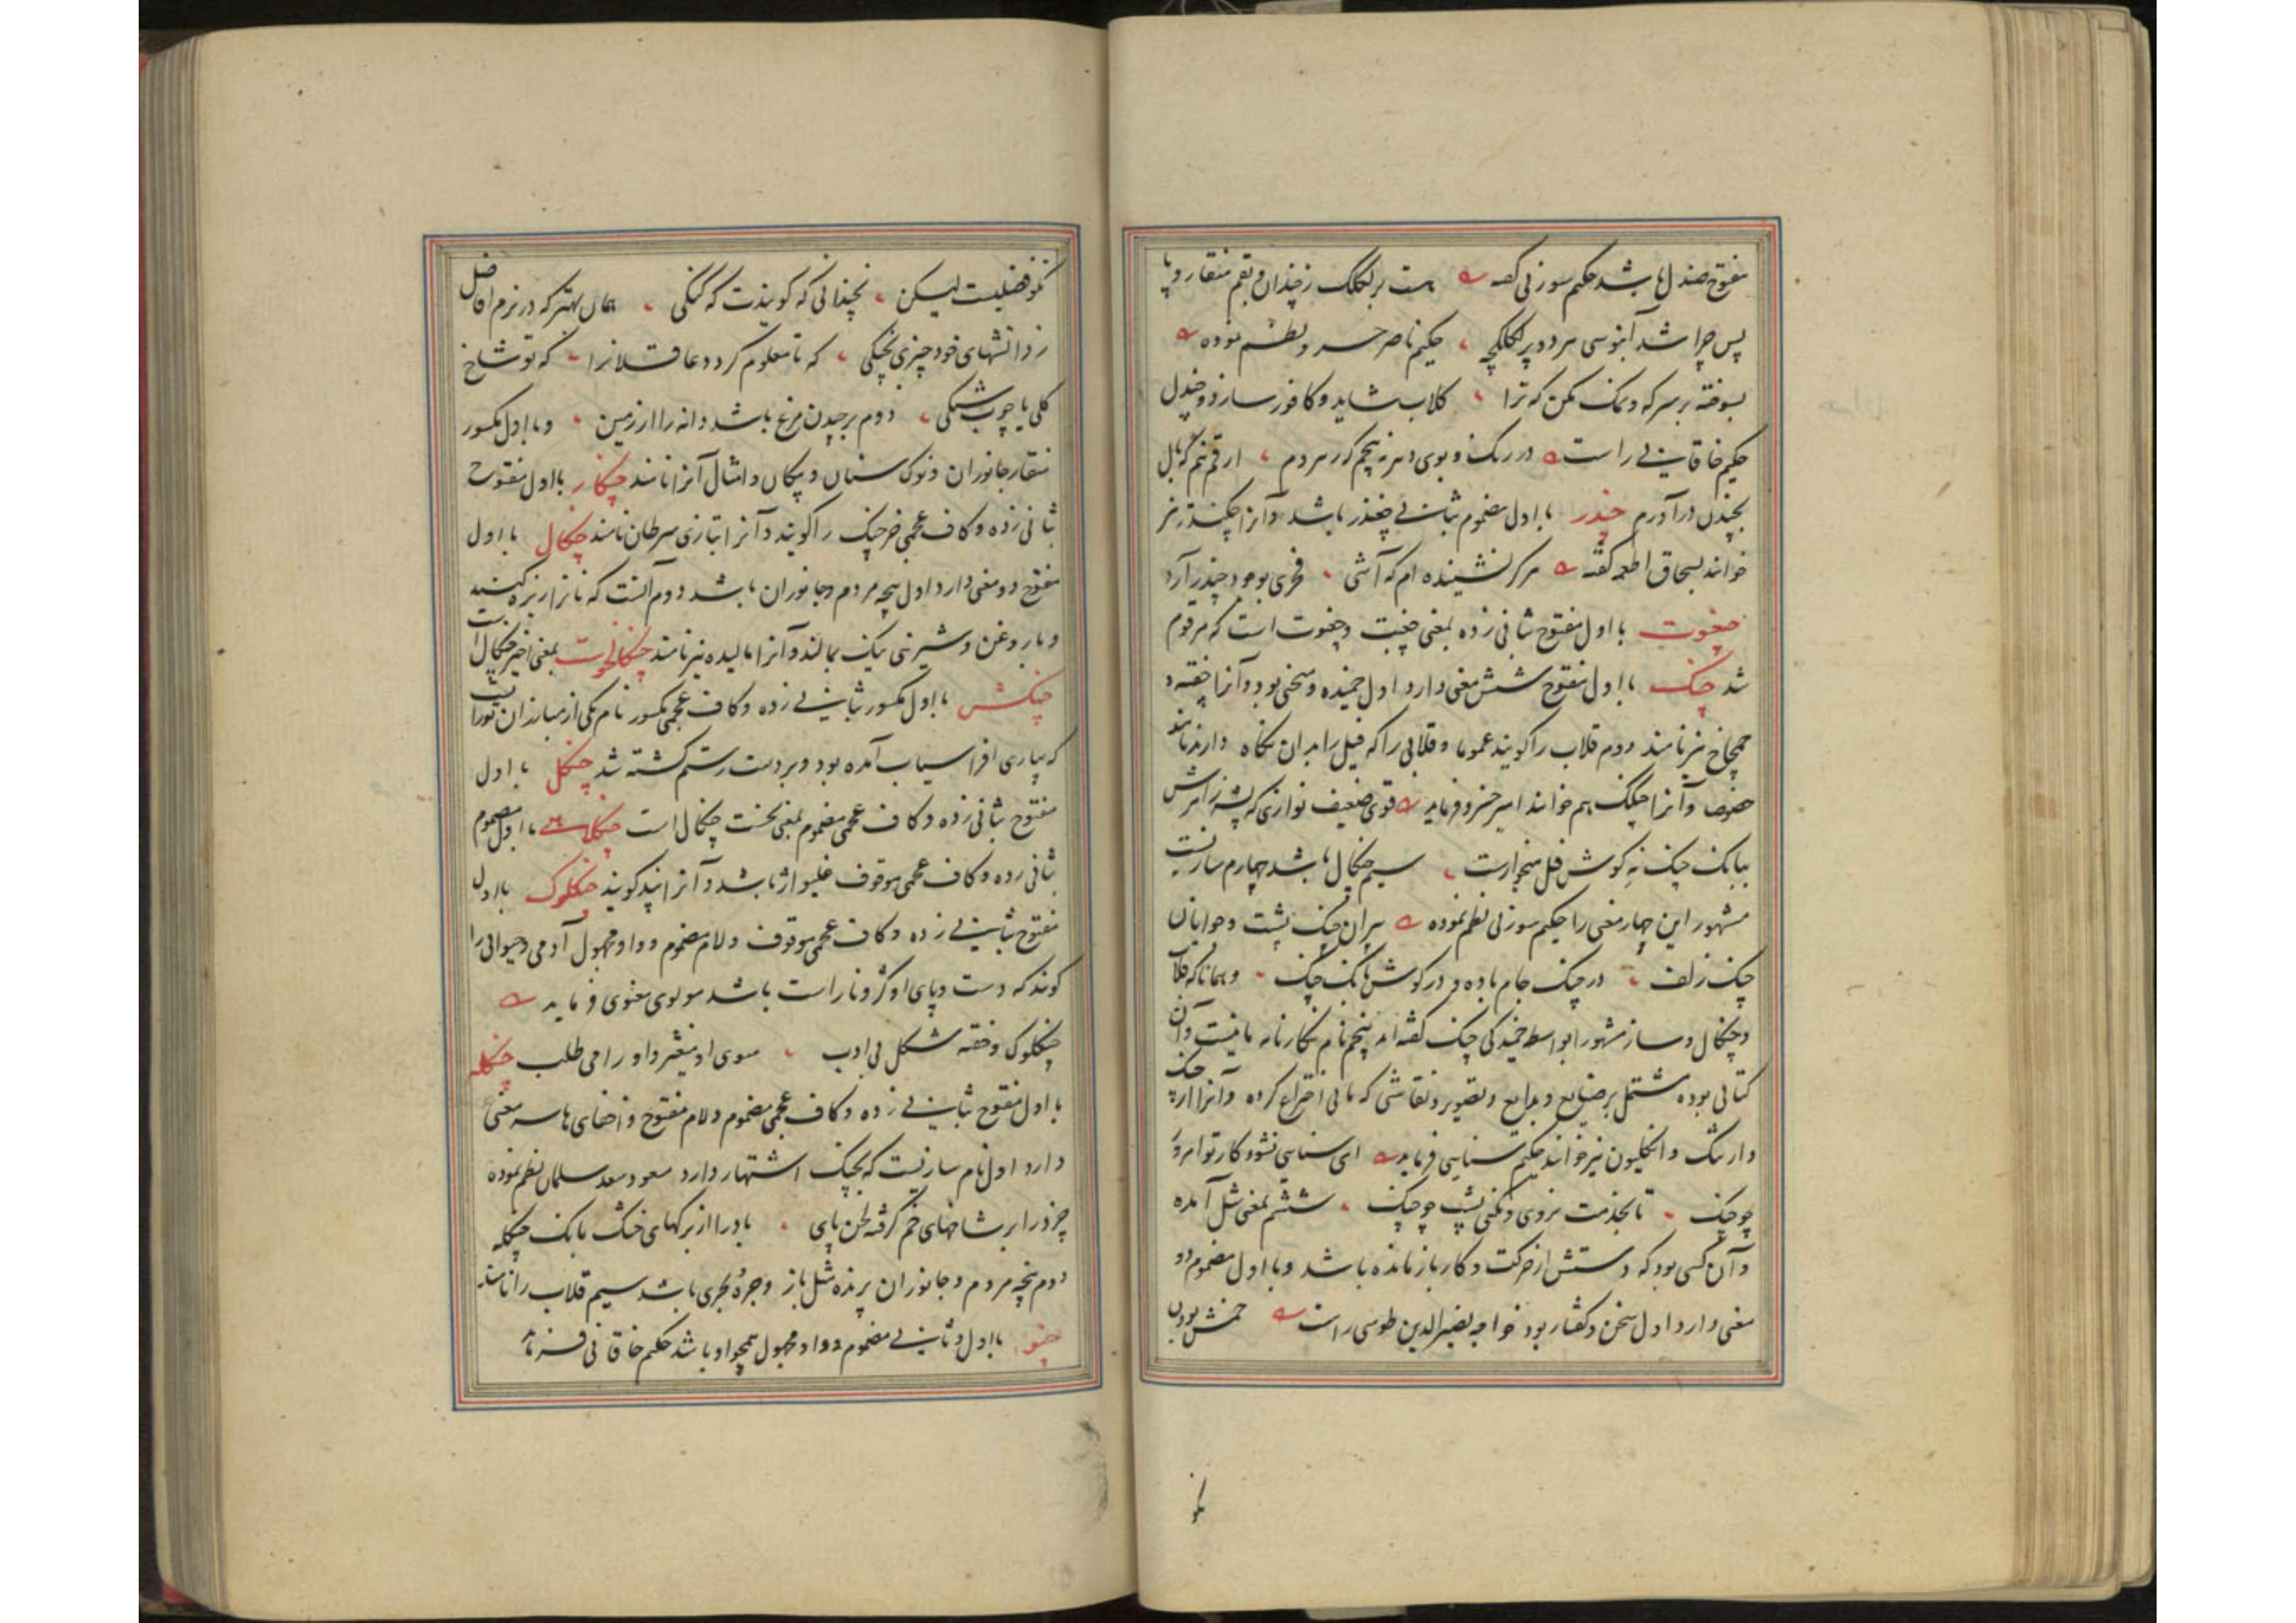 مفتوح صندل باشد حکیم سوزنی گفته هست بر لکلک ز چندان و بقم منقار و پا
پس چرا شد آبنوسی هر دو پر لکلکچه حکیم ناصر خسرو نظم نموده
بسوخته بر سرکه و نمک مکن که ترا کلاب شاید و کافور سازد و چندل
حکیم خاقانی راست در رنک و بوی دهر نه پیچم که رهروم ارقم نیم که بال
بچندن درآورم چندر با اول مضموم بثانی چغندر باشد و آنرا چکندر نیز
خوانند بسحاق اطعمه گفته هرکز نشینده ام که آشی فخری بوجود چندر آرد
چغوت با اول مفتوح ثانی زده بمعنی چغبت و چغوت است که مرقوم
شد چنک با اول مفتوح شش معنی دارد اول خمیده و منحنی بود و آنرا چفته و
چمچاخ نیز نامند دوم قلاب را کویند عموما و قلابی را که فیل را بدان نکاه دارند
خصوصا و آنرا کجک هم خوانند امیر خسرو فرماید قوی ضعیف نوازی که پشه از امرش
ببانک چنک نه کوش فیل سیم چنکال باشد چهارم سازیست
مشهور این چهار معنی را حکیم سوزنی نظم نموده پیران چنک پشت و جوانان
چنک زلف در چنک جام باده و در کوش بانک چنک و همانا که قلاب
و چنکال و ساز مشهور را بواسطه خمیدکی چنک گفته اند پنجم نام نکارنامه مانیست و آن
کتابی بوده مشتمل بر صنایع و بدایع و تصویر و نقاشی که مانی اختراع کرده و آنرا ارچنک
و ارتنک و انکلیون نیز خوانند حکیم سنایی فرماید ای سنایی نشود کار تو امروز
چو چنک تا بخدمت نروی و نکنی پشت چو چنک ششم بمعنی شل آمده
و آن کسی بود که دستش از حرکت و کار باز مانده باشد و با اول مضموم دو
معنی دارد اول سخن و گفتار بود خواجه نصیرالدین طوسی راست خمش بودن
نکو فضلیست لیکن نچندانی که کویندت که کنکی همان بهتر که در بزم افاضل
ز دانشهای خود چیزی بچنکی که تا معلوم کردد عاقلانرا که تو شاخ
کلی یا چوب شنکی دوم برچیدن مرغ باشد دانه را از زمین و با اول مکسور
منقار جانوران و نوک سنان و پیکان و امثال آنرا نامند چنکار با اول مفتوح
بثانی زده و کاف عجمی خرچنک را کویند و آنرا بتازی سرطان نامند چنکال با اول
مفتوح دو معنی دارد اول پنجه مردم و جانوران باشد دوم آنست که نانرا ریزه کنند
و بار وغن و شیرینی نیک بمالند و آنرا مالیده نیز نامند چنکالخوست بمعنی اخیر چنکال است
چنکش با اول مکسور بثانی زده و کاف عجمی مکسور نام یکی از مبارزان تورانست
که بیاری افراسیاب آمده بود و بر دست رستم کشته شد چنکل با اول
مفتوح بثانی زده و کاف عجمی مضموم بمعنی نخست چنکال است چنکلاهی با اول مضموم
بثانی زده و کاف عجمی موقوف غلیواژ باشد و آنرا پند کویند چنکلوک با اول
مفتوح بثانی زده و کاف عجمی موقوف و لام مضموم و واو مجهول آدمی و حیوانی را
کویند که دست و پای او کژ و ناراست باشد مولوی معنوی فرماید
چنکلوک و خفته شکل و بی ادب سوی او میغیژ و او را می طلب چنکله
با اول مفتوح بثانی زده و کاف عجمی مضموم و لام مفتوح و اخفای ها سه معنی
دارد اول نام سازیست که بچنک اشتهار دارد مسعود سعد سلمان نظم نموده
چزد را بر شاخهای خم کرفته لحن نای باد را از برکهای خشک بانک چنکله
دوم پنجه مردم و جانوران پرنده مثل باز و جره و بحری باشد سیم قلاب را نامند
چنو با اول و ثانی مضموم و واو مجهول همچو او باشد حکیم خاقانی فرماید
نکو